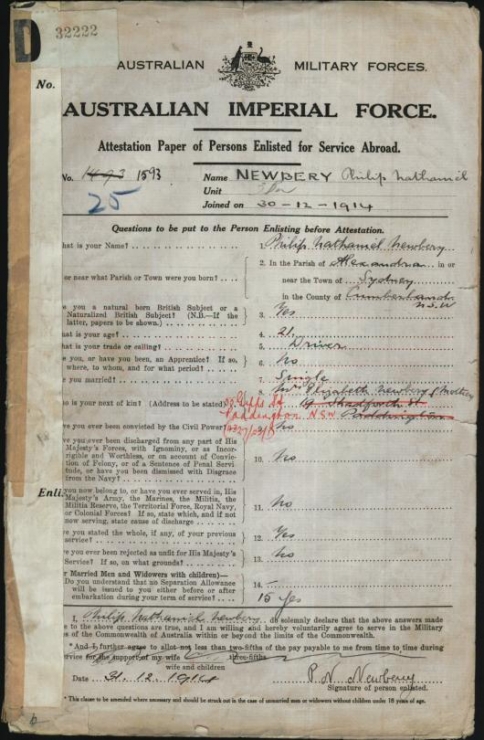 D 32222
AUSTRALIAN MILITARY FORCES.
No.
AUSTRALIAN IMPERIAL FORCE.
Attestation Paper of Persons Enlisted for Service Abroad.
No. 1493 1593 Name NEWBERY Philip Nathaniel
25 Unit
Joined on 30-12-1914
Questions to be put to the Person Enlisting before Attestation.
hat is your Name? 1. Philip Nathaniel Newbery
2. In the Parish of Alexandria in or
or near what Parish or Town were you born? near the Town of Sydney
in the County of Cumberland N.S.W
e you a natural born British Subject or a
Naturalized British Subject? (N.B.—If the
latter, papers to be shown.) 3. Yes
hat is your age? 4. 21
hat is your trade or calling? 5. Driver
e you, or have you been, an Apprentice? If so,
where, to whom, and for what period? 6. No
e you married? 7. Single
Mrs Elizabeth Newbery (Mother)
o is your next of kin? (Address to be stated) 19
Paddington NSW Paddington
ve you ever been convicted by the Civil Power? 9. No
ve you ever been discharged from any part of His
Majesty's Forces, with Ignominy, or as Incor-
rigible and Worthless, or on account of Convic-
tion of Felony, or of a Sentence of Penal Servi-
tude, or have you been dismissed with Disgrace
from the Navy? 10. No
Enli
you now belong to, or have you ever served in, His
Majesty's Army, the Marines, the Militia, the
Militia Reserve, the Territorial Force, Royal Navy,
or Colonial Forces? If so, state which, and if not
now serving, state cause of discharge 11. No
ve you stated the whole, if any, of your previous
service? 12. Yes
ve you ever been rejected as unfit for His Majesty's
Service? If so, on what grounds? 13. No
r Married Men and Widowers with children)—
Do you understand that no Separation Allowance
will be issued to you either before or after
embarkation during your term of service? 14. —
15 Yes
I, Philip Nathaniel Newbery, do solemnly declare that the above answers made
e to the above questions are true, and I am willing and hereby voluntarily agree to serve in the Military
es of the Commonwealth of Australia within or beyond the limits of the Commonwealth.
* And I further agree to allot not less than two-fifths of the pay payable to me from time to time during
three-fifths
service for the support of my wife
wife and children
Date 31.12.1914 P. N. Newbery
Signature of person enlisted.
* This clause to be amended where necessary and should be struck out in the case of unmarried men or widowers without children under 18 years of age.